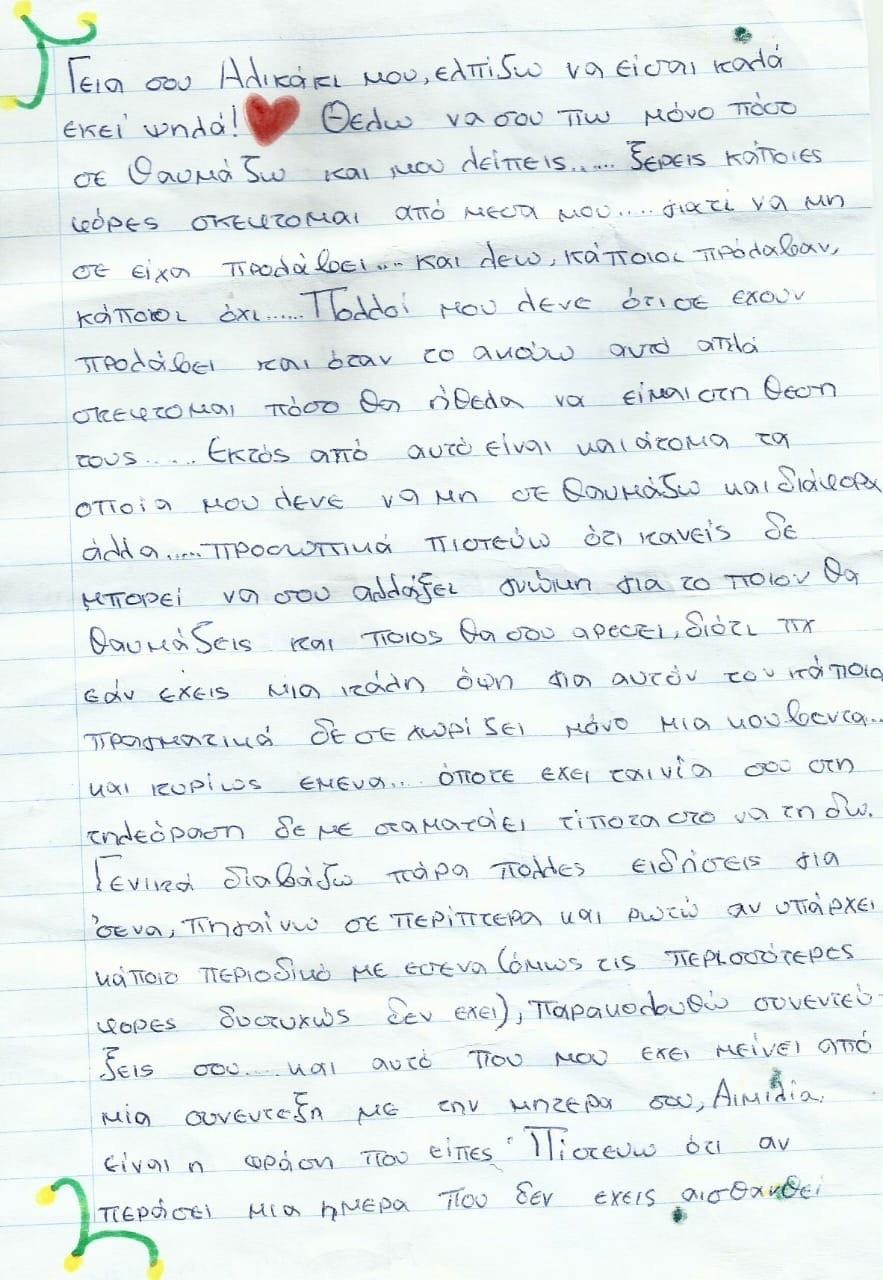 Γεια σου Αλικάκι μου, ελπίζω να είσαι καλά
εκεί ψηλά! Θέλω να σου πω μόνο πόσο
σε θαυμάζω και μου λείπεις..... ξερεις κάποιες
φόρες σκεφτομαι από μεσα μου.... γιατί να μη
σε είχα προλάβει... και λεω, κάποιοι πρόλαβαν,
κάποιοι όχι..... Πολλοί μου λενε ότι σε εχουν
προλάβει και όταν το ακούω αυτό απλά
σκεφτομαι πόσο θα ήθελα να είμαι στη θεση
τους..... Εκτός από αυτό είναι και άτομα τα
οποία μου λενε να μη σε θαυμάζω και διάφορα
άλλα..... προσωπικά πιστεύω ότι κανείς δε
μπορεί να σου αλλάξει γνώμη για το ποιον θα
θαυμάζεις και ποιος θα σου αρεσει, διότι πχ
εάν εχεις μια κάλη όψη για αυτόν τον κάποιο
πραγματικά δε σε χωρίζει μόνο μια κουβεντα...
και κυρίως εμενα... όποτε εχει ταινία σου στη
τηλεόραση δε με σταματάει τίποτα στο να τη δω.
Γενικά διαβάζω πάρα πολλες ειδήσεις για
σενα, πηγαίνω σε περίπτερα και ρωτώ αν υπάρχει
κάποιο περιοδικό με εσενα (όμως τις περισσότερες
φορες δυστυχώς δεν εχει), παρακολουθώ συνεντεύ-
ξεις σου.... και αυτό που μου εχει μείνει από
μία συνεντεξη με την μητερα σου, Αιμιλία.
είναι η φράση που είπες "Πίστευω ότι αν
περάσει μια ημερα που δεν εχεις αισθανθεί